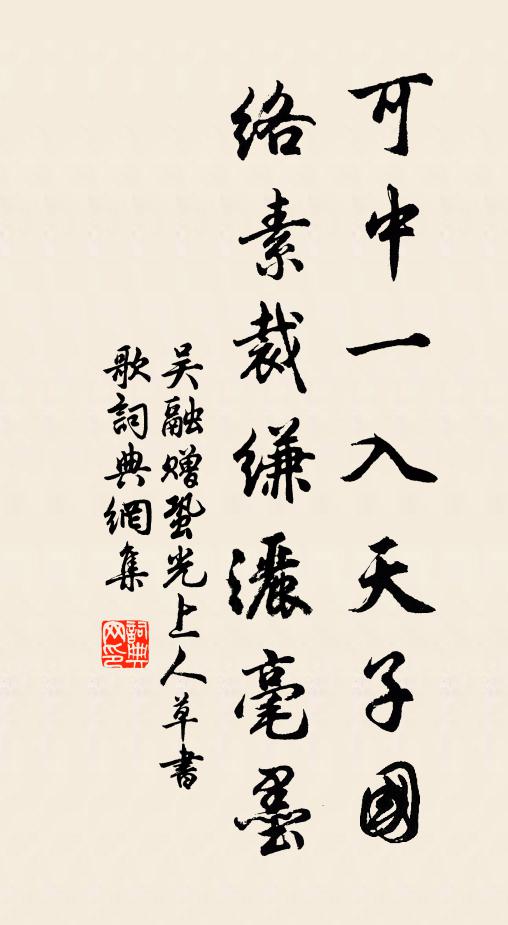 可中一入天子國
絡素裁縑灑毫墨
吴融贈蛩光上人草書
歌詞典網集
詞典網印